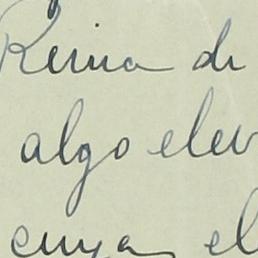 Reina de
algo elev
cuya el